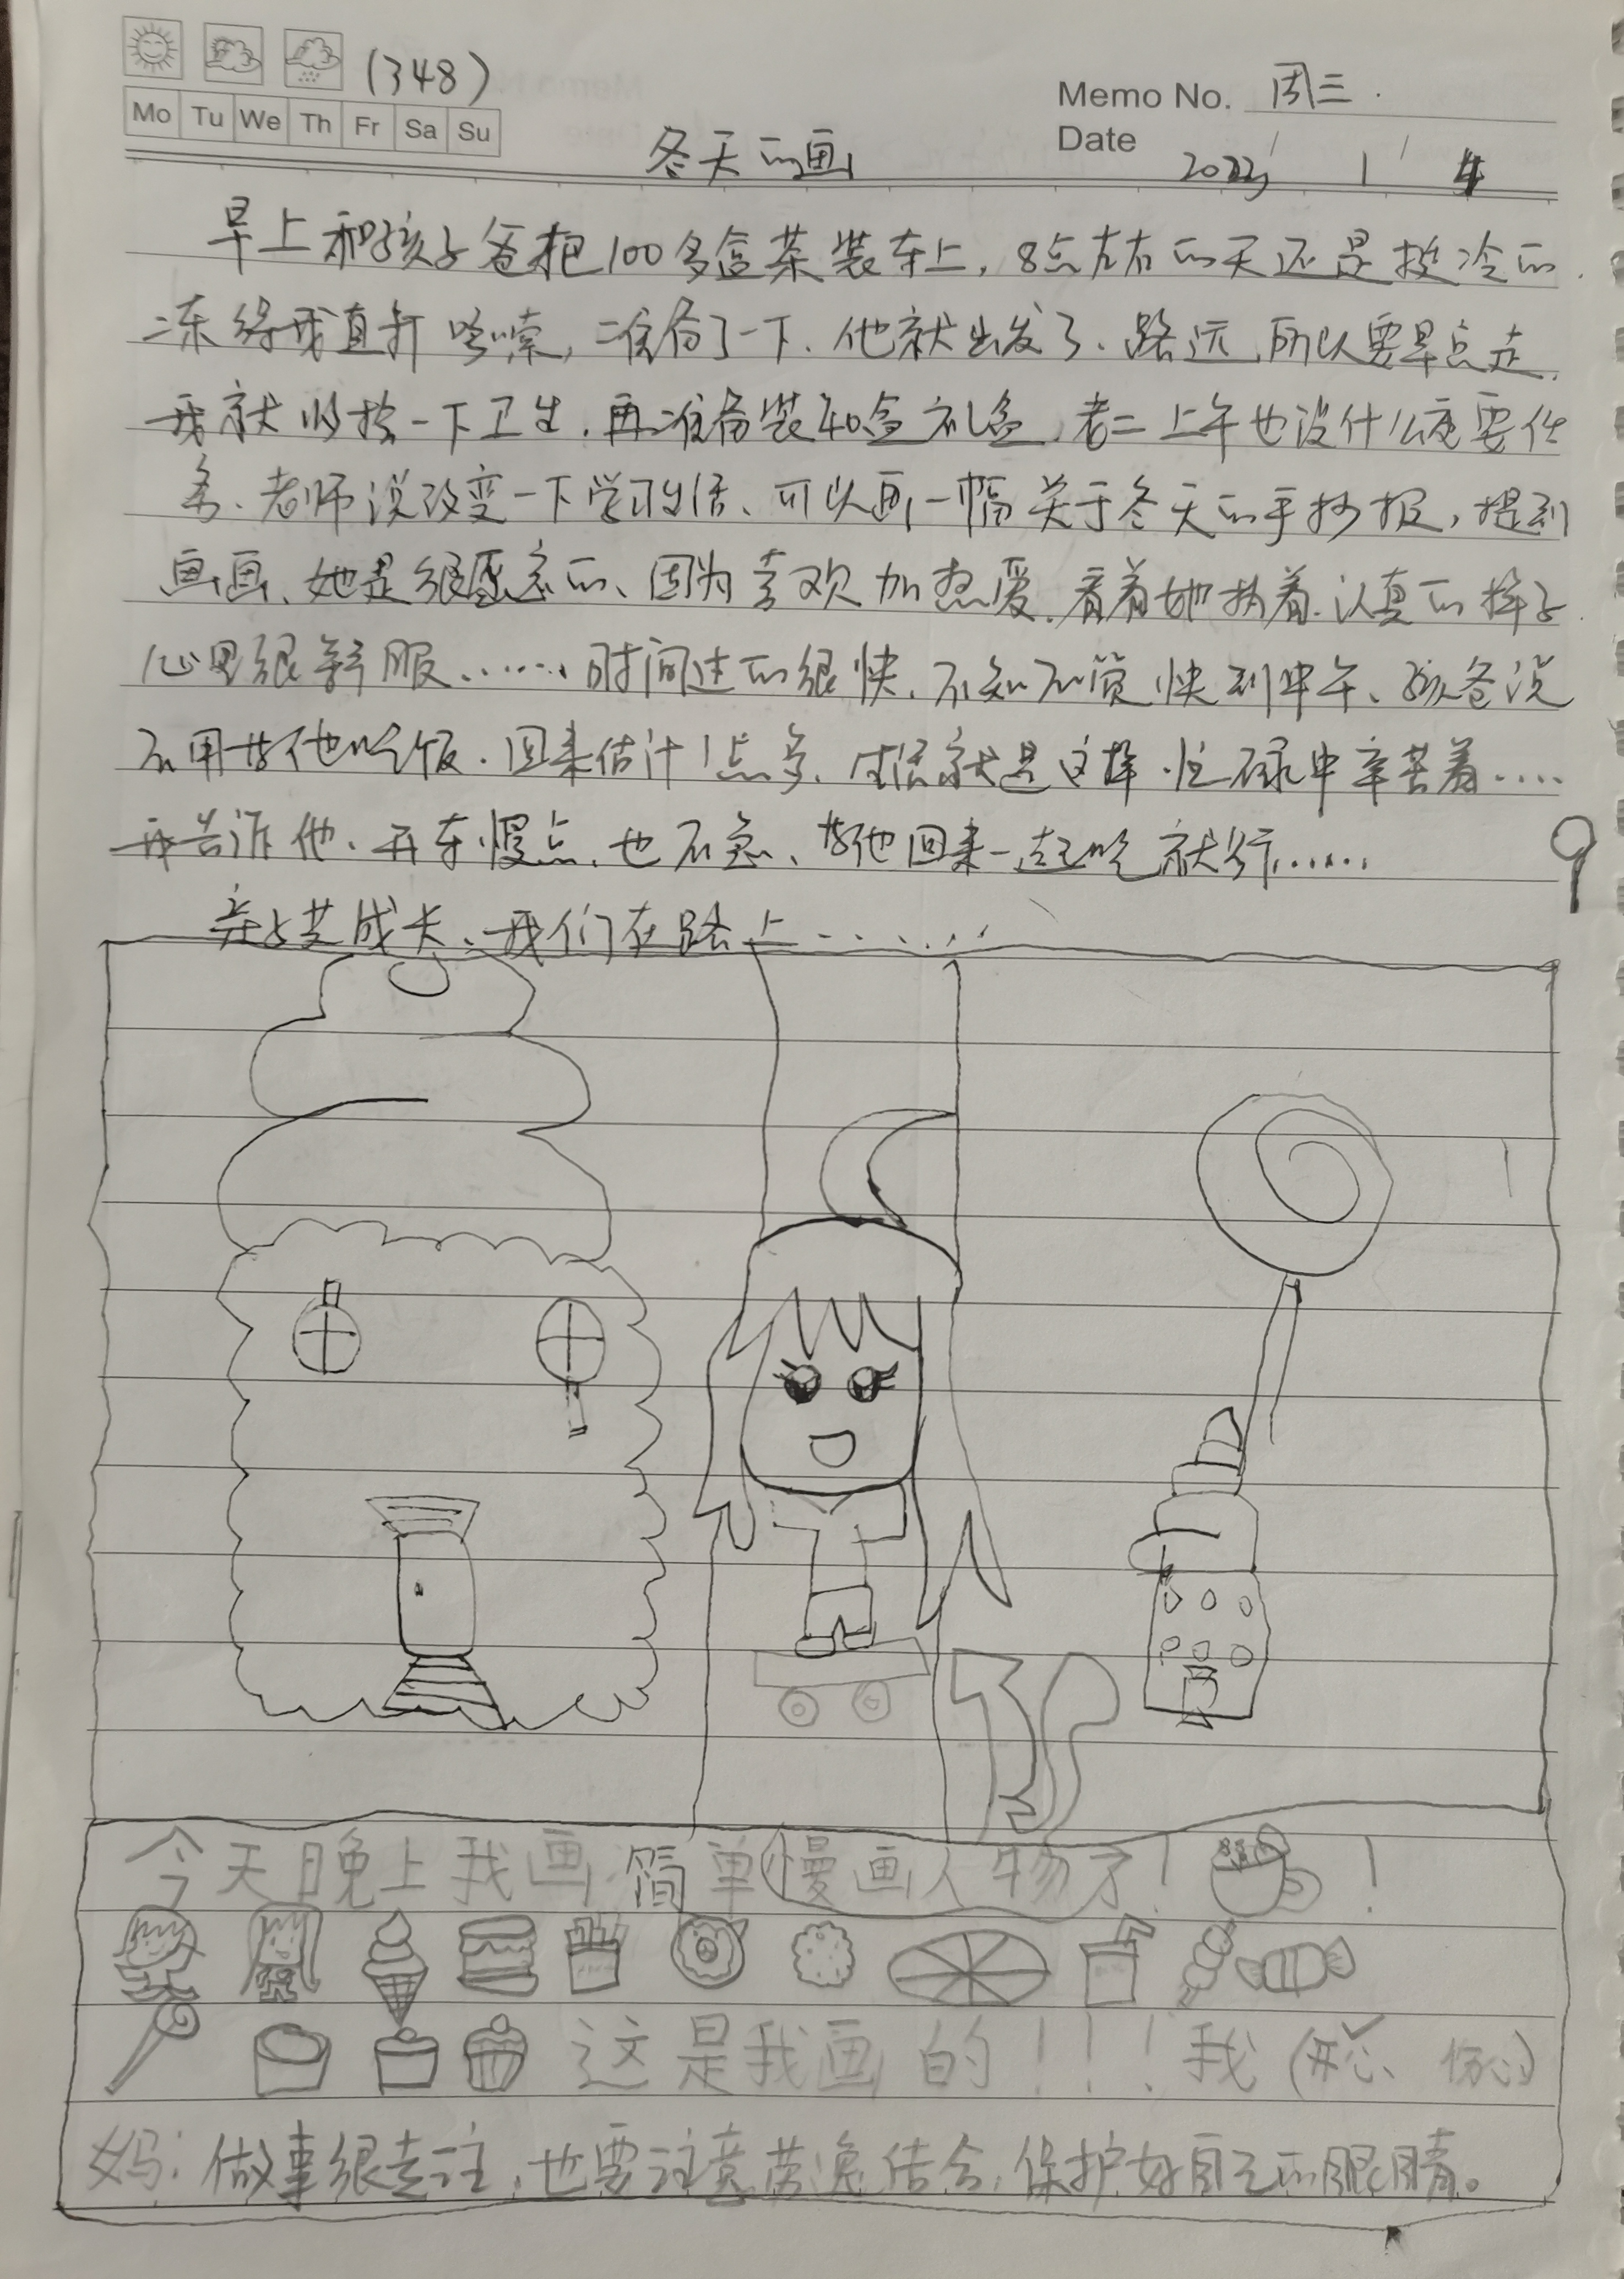 (348)
Memo No. 周三.
Mo Tu We Th Fr Sa Su
Date 2023 / 1 / 4
冬天的画
早上和孩子爸把100多盒菜装车上，8点左右的天还是挺冷的.
冻得我直打哆嗦，准备了一下、他就出发了、路远，所以要早点走，
我就收拾一下卫生，再准备装40盒礼盒，老二上午也没什么重要任
务、老师说改变一下学习生活、可以画一幅关于冬天的手抄报，提到
画画、她是很愿意的、因为喜欢加热爱、看着她执着、认真的样子
心里很舒服……时间过的很快、不知不觉快到中午、孩爸说
不用等他吃饭、回来估计1点多、生活就是这样、忙碌中幸苦着……
我告诉他、开车慢点、也不急、等他回来一起吃就行……
亲子共成长、我们在路上……
今天晚上我画简单慢画人物了！！
这是我画的！！！我(开心、伤心)
妈：做事很专注，也要注意劳逸结合，保护好自己的眼睛。